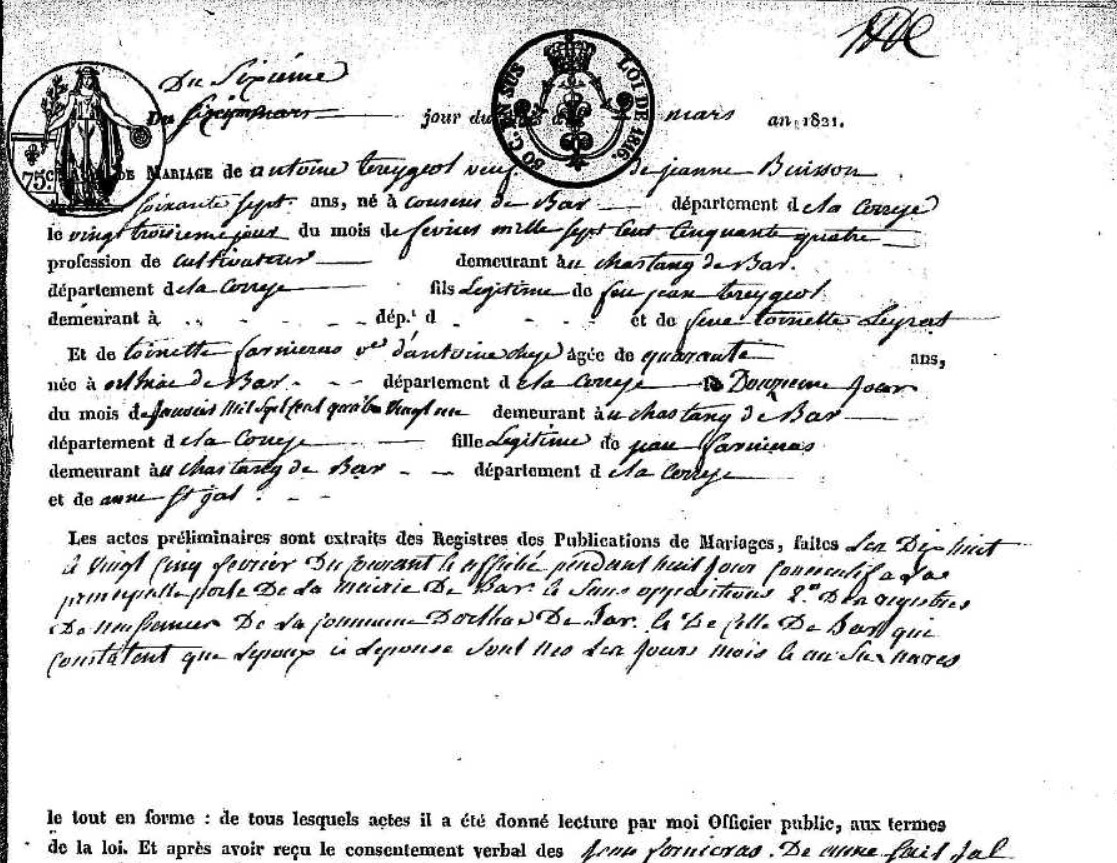 Du Sixieme
Du jour du mois de mars an 1821.
75c
50 C. EN SUS LOI DE 1816.
DE MARIAGE de antoine treygeol veuf de jeanne Buisson
soixante sept ans, né à de Bar département de la Correze
le vingt troisieme jour du mois de fevrier mille sept cent cinquante quatre
profession de cultivateur demeurant au chastang de Bar.
département de la Correze fils Legitime de feu jean treygeol
demeurant à dép.t d et de feue toinette Leyrat
Et de toinette farnieras ve d'antoine âgée de quarante ans,
née à de Bar. département de la Correze le Douzieme Jour
du mois de Janvier Mil Sept Cent quatre Vingt un demeurant au chastang de Bar
département de la Correze fille Legitime de jean farnieras
demeurant au chastang de Bar département de la Correze
et de anne St jal.
Les actes préliminaires sont extraits des Registres des Publications de Mariages, faites Les Dix huit
& Vingt Cinq fevrier Du Courant & affiché pendant huit Jour Consecutif a la
principalle porte De la Mairie De Bar & Sans oppositions 2.º Des registres
De naissances De la Commune De Bar & De Celle De Bar qui
Constatent que Lepoux & Lepouse Sont nés Les Jours mois & an
le tout en forme : de tous lesquels actes il a été donné lecture par moi Officier public, aux termes
de la loi. Et après avoir reçu le consentement verbal des Jean farnieras. De anne Jal